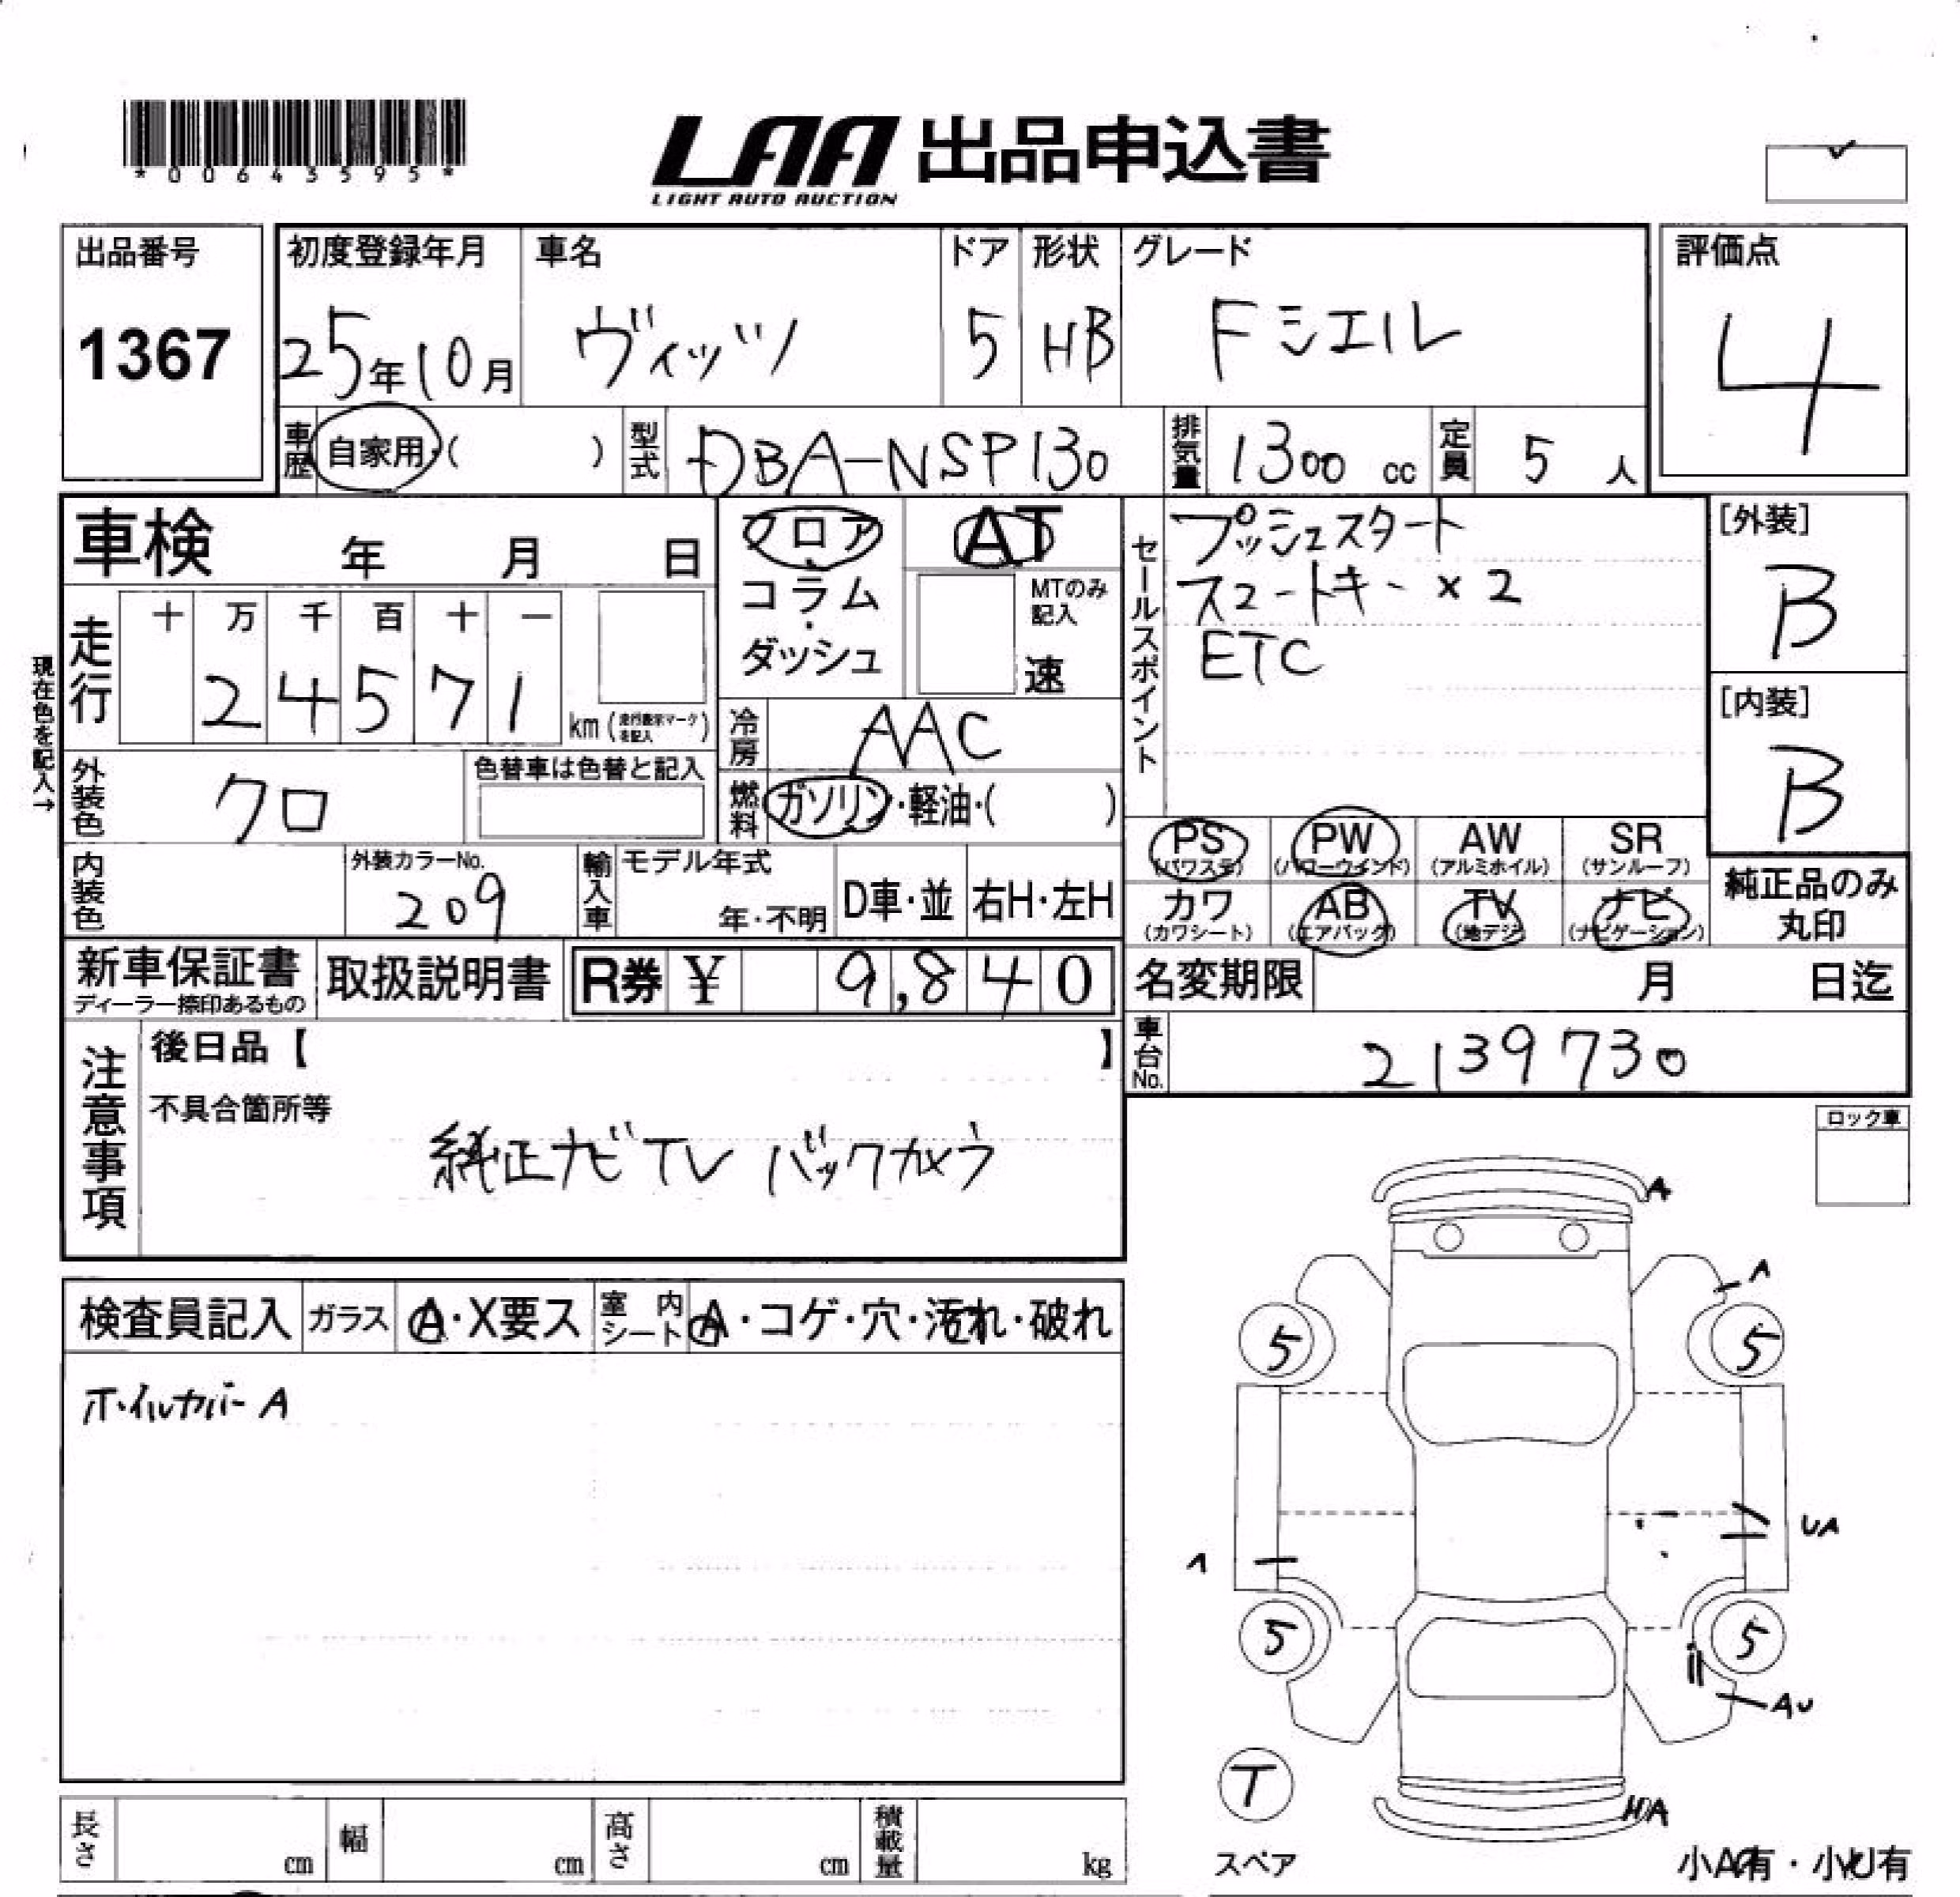 *00643595*
LAA 出品申込書
LIGHT AUTO AUCTION
出品番号
1367
初度登録年月
25年10月
車名
ヴィッツ
ドア
5
形状
HB
グレード
Fシエル
評価点
4
車歴
自家用・( )
型式
DBA-NSP130
排気量
1300 cc
定員
5 人
車検 年 月 日
現在色を記入→
走行
十 万 千 百 十 一
2 4 5 7 1
km (走行表示マークを記入)
フロア
コラム
ダッシュ
AT
MTのみ記入
速
冷房
AAC
燃料
ガソリン・軽油・( )
外装色
クロ
色替車は色替と記入
内装色
外装カラーNo.
209
輸入車
モデル年式
年・不明
D車・並
右H・左H
セールスポイント
プッシュスタート
スマートキー×2
ETC
[外装]
B
[内装]
B
PS (パワステ)
PW (パワーウインド)
AW (アルミホイル)
SR (サンルーフ)
カワ (カワシート)
AB (エアバック)
TV (地デジ)
ナビ (ナビゲーション)
純正品のみ丸印
新車保証書
ディーラー捺印あるもの
取扱説明書
R券 ¥ 9,840
名変期限 月 日迄
車台No.
2139730
注意事項
後日品【 】
不具合箇所等
純正ナビTV バックカメラ
ロック車
検査員記入
ガラス
A・X要ス
室内シート
A・コゲ・穴・汚れ・破れ
ホイルカバーA
A
A
5
5
UA
A
5
5
AU
T
スペア
A
小A有・小U有
長さ cm
幅 cm
高さ cm
積載量 kg